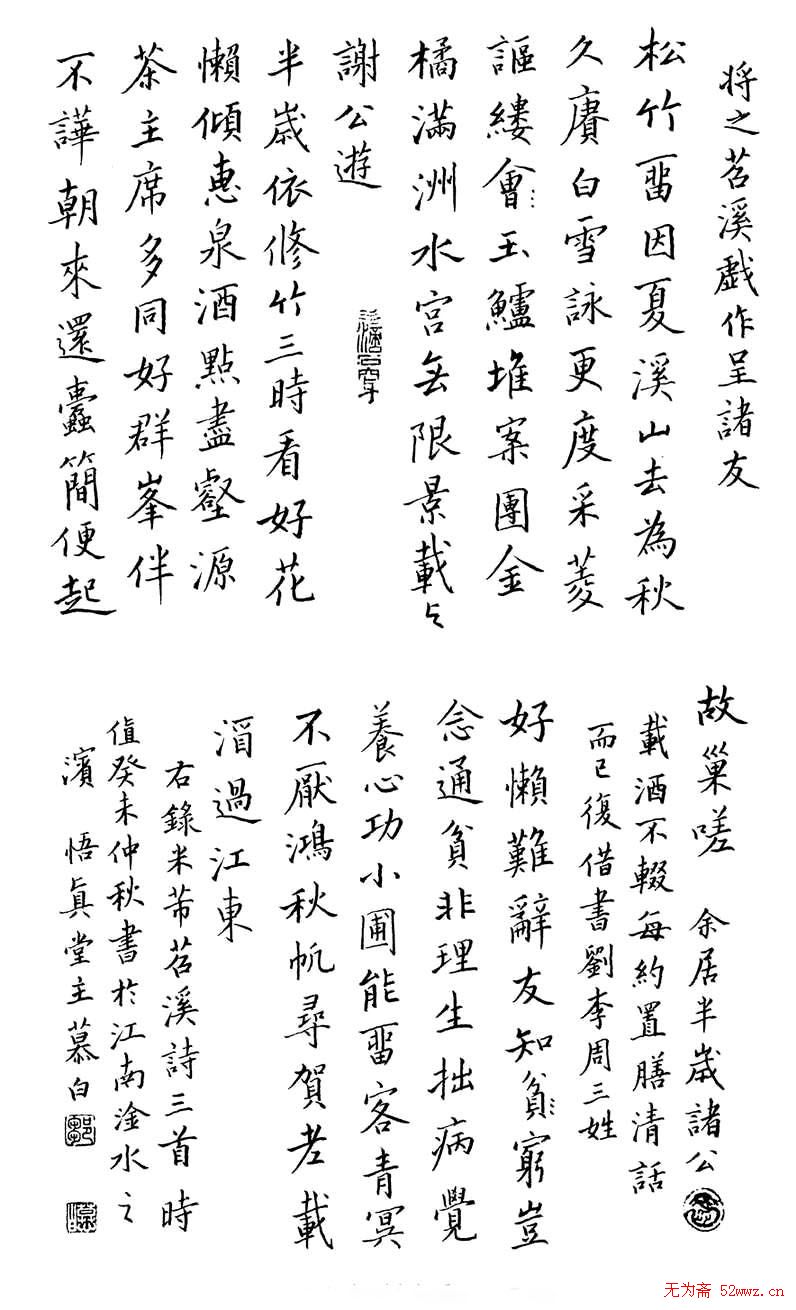 将之苕溪戲作呈諸友
松竹畱因夏溪山去為秋
久賡白雪詠更度采菱
謳縷會玉鱸堆案團金
橘滿洲水宮無限景載与
謝公遊
半歲依修竹三時看好花
懶傾惠泉酒點盡壑源
茶主席多同好群峯伴
不譁朝來還蠹簡便起
故巢嗟 余居半歲諸公
載酒不輟每約置膳清話
而已復借書劉李周三姓
好懶難辭友知貧窮豈
念通貧非理生拙病覺
養心功小圃能畱客青冥
不厭鴻秋帆尋賀老載
酒過江東
右錄米芾苕溪詩三首時
值癸未仲秋書於江南淦水之
濱 悟真堂主慕白
无为斋 52wwz.cn